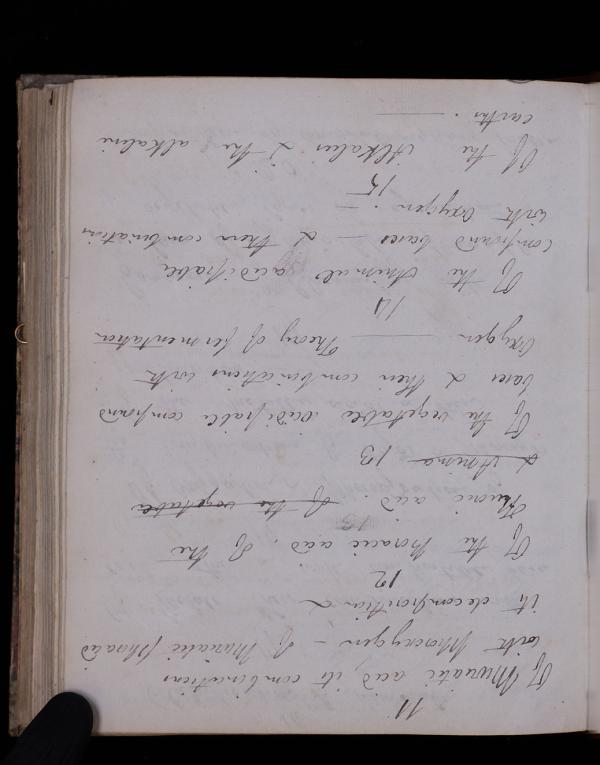 11
Of Muriatic acid, its combinations
with Phosoxygen - Of Muriatic phosacid
it decomposition &
12
Of the Boracic acid. Of the
Fluoric acid. Of the vegetable
& Anima 13
Of the vegetable acidifiable compound
bases & their combinations with
oxygen — Theory of fermentation
14
Of the Animal acidifiable
compound bases — & their combinations
with oxygen. —
15
Of the Alkalies & the alkaline
earths. —